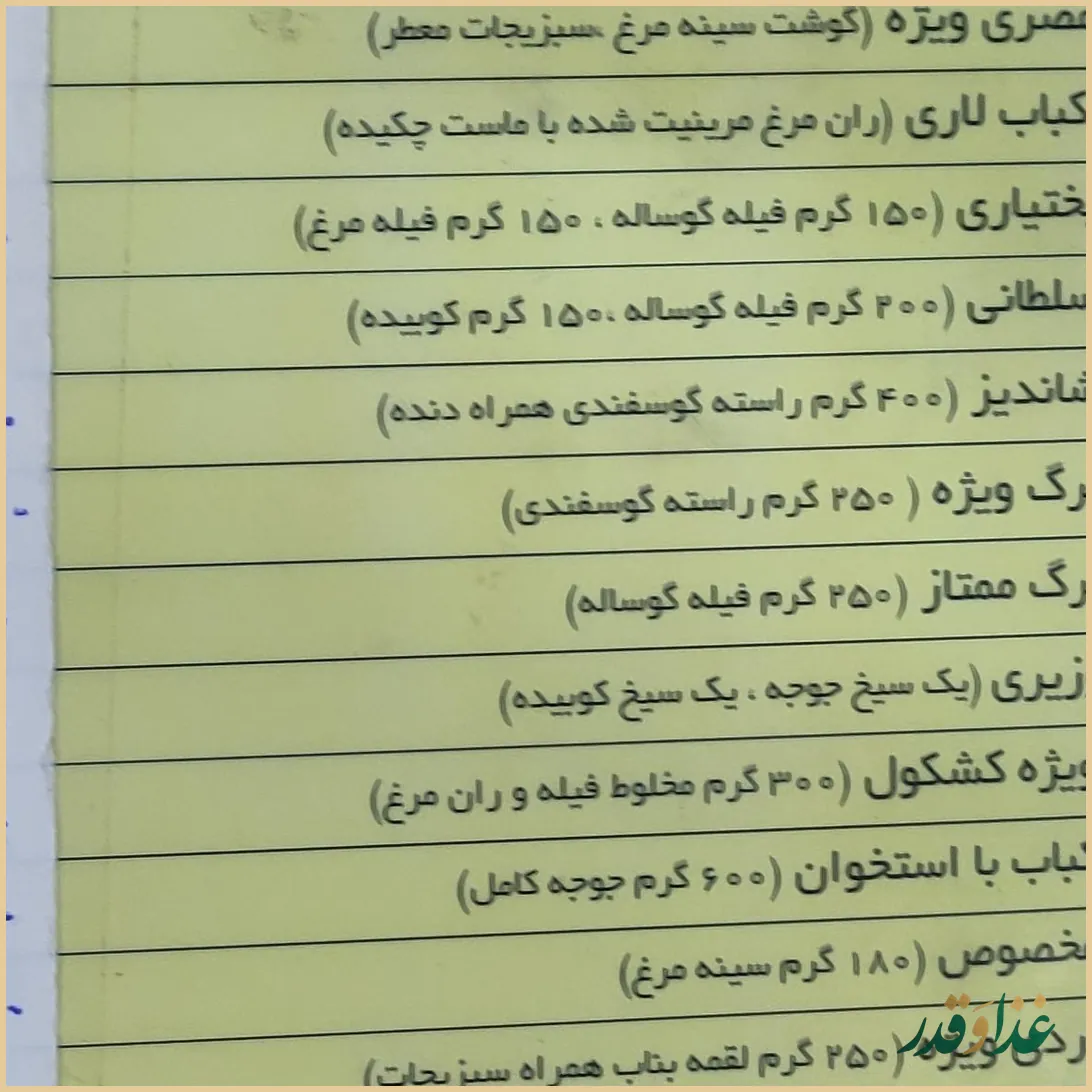 ویژه (گوشت سینه مرغ ،سبزیجات معطر)
کباب لاری (ران مرغ مرینیت شده با ماست چکیده)
ختیاری (۱۵۰ گرم فیله گوساله ، ۱۵۰ گرم فیله مرغ)
سلطانی (۲۰۰ گرم فیله گوساله ،۱۵۰ گرم کوبیده)
شاندیز (۴۰۰ گرم راسته گوسفندی همراه دنده)
رگ ویژه ( ۲۵۰ گرم راسته گوسفندی)
رگ ممتاز (۲۵۰ گرم فیله گوساله)
زیری (یک سیخ جوجه ، یک سیخ کوبیده)
ویژه کشکول (۳۰۰ گرم مخلوط فیله و ران مرغ)
کباب با استخوان (۶۰۰ گرم جوجه کامل)
خصوص (۱۸۰ گرم سینه مرغ)
ویژه (۲۵۰ گرم لقمه بناب همراه سبزیجات)
غذا و قدر